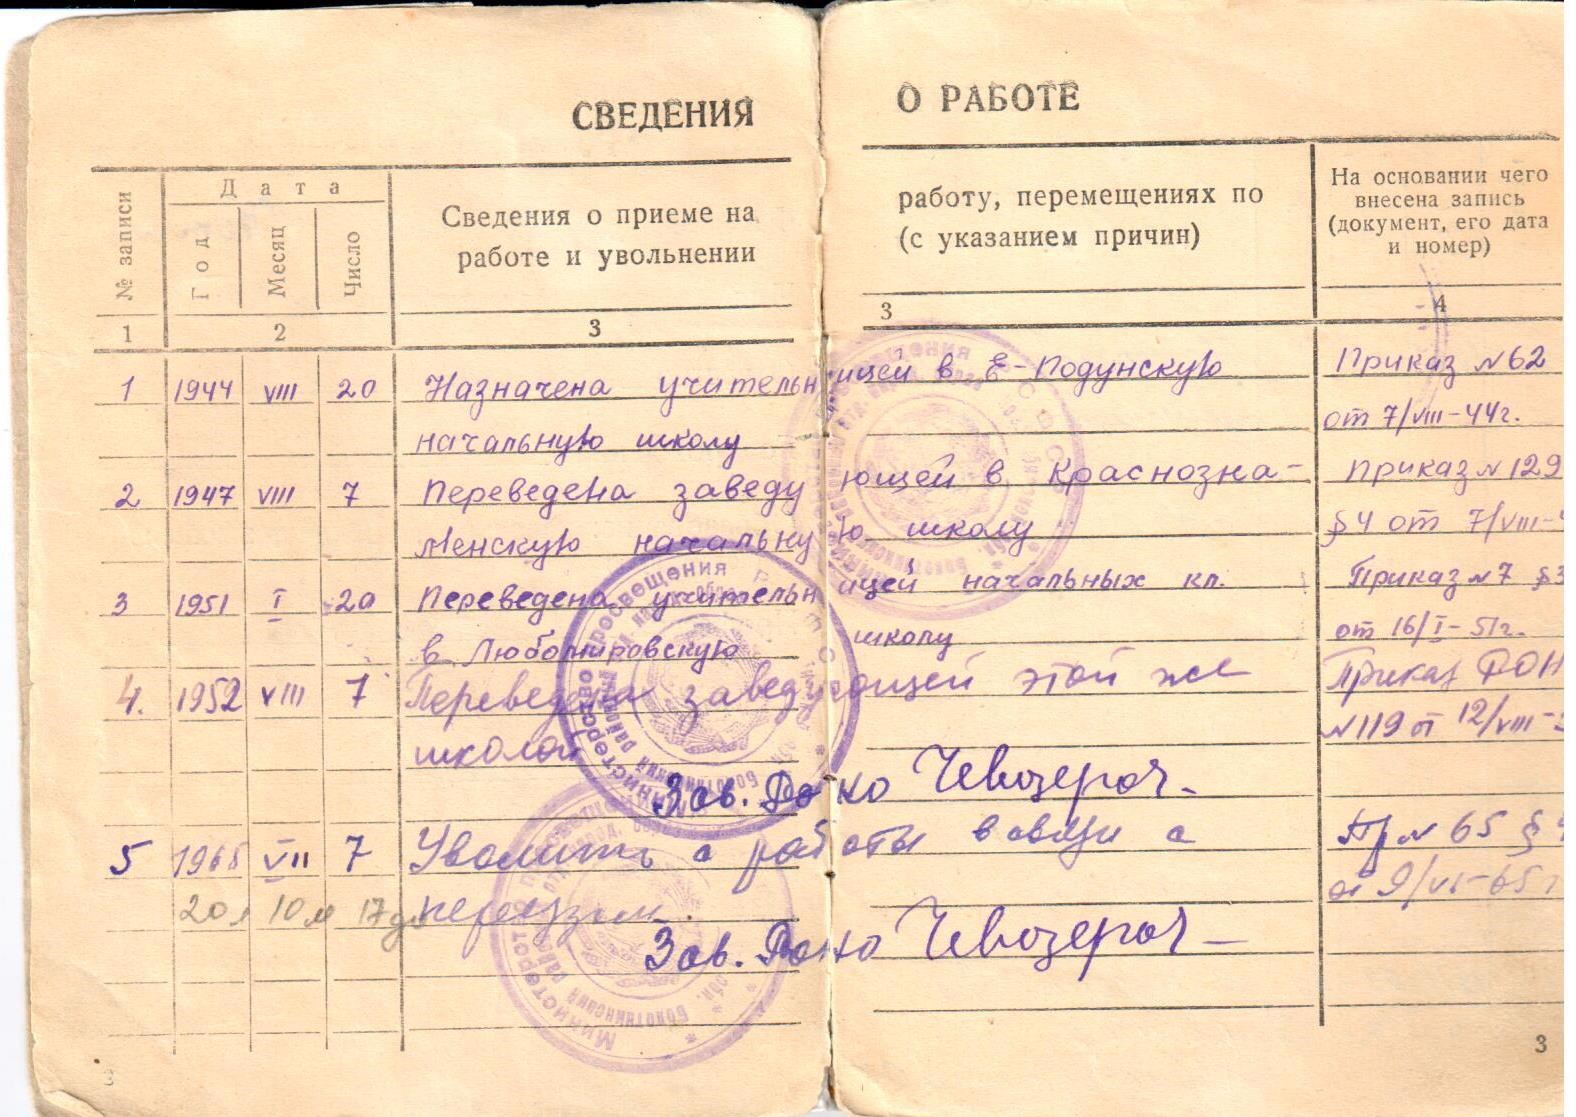 СВЕДЕНИЯ О РАБОТЕ
№ записи
Дата
Год
Месяц
Число
Сведения о приеме на работу, перемещениях по
работе и увольнении (с указанием причин)
На основании чего
внесена запись
(документ, его дата
и номер)
1 2 3 3 4
1 1944 VIII 20 Назначена учительницей в Е-Подунскую Приказ №62
начальную школу от 7/VIII-44г.
2 1947 VIII 7 Переведена заведующей в Краснозна- Приказ №129
менскую начальную школу §4 от 7/VIII-4
3 1951 I 20 Переведена учительницей начальных кл. Приказ №7 §3
в Любомировскую школу от 16/I-51г.
4. 1952 VIII 7 Переведена заведующей этой же Приказ РОН
школой №119 от 12/VIII-5
Зав. Роно
5 1965 VII 7 Уволить с работы в связи с Пр №65 §4
20л 10м 17дн переездом. от 9/VI-65г
Зав. Роно
3
3
Министерство просвещения РСФСР
Болотнинский